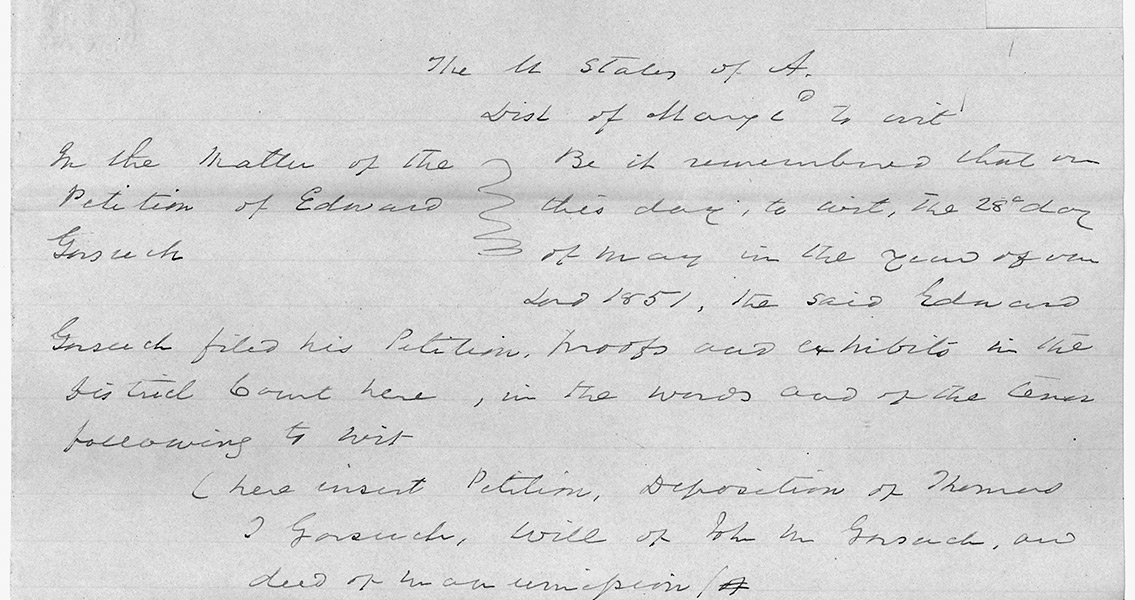 The U States of A.
Dist of Maryld To wit
In the Matter of the
Petition of Edward
Gorsuch
Be it remembered that on
this day, to wit, the 28th day
of May in the year of our
Lord 1851, the said Edward
Gorsuch filed his Petition, Proofs and exhibits in the
District Court here, in the words and of the tenor
following to wit
(here insert Petition, Deposition of Thomas
J Gorsuch, Will of John M Gorsuch, and
deed of manumission (